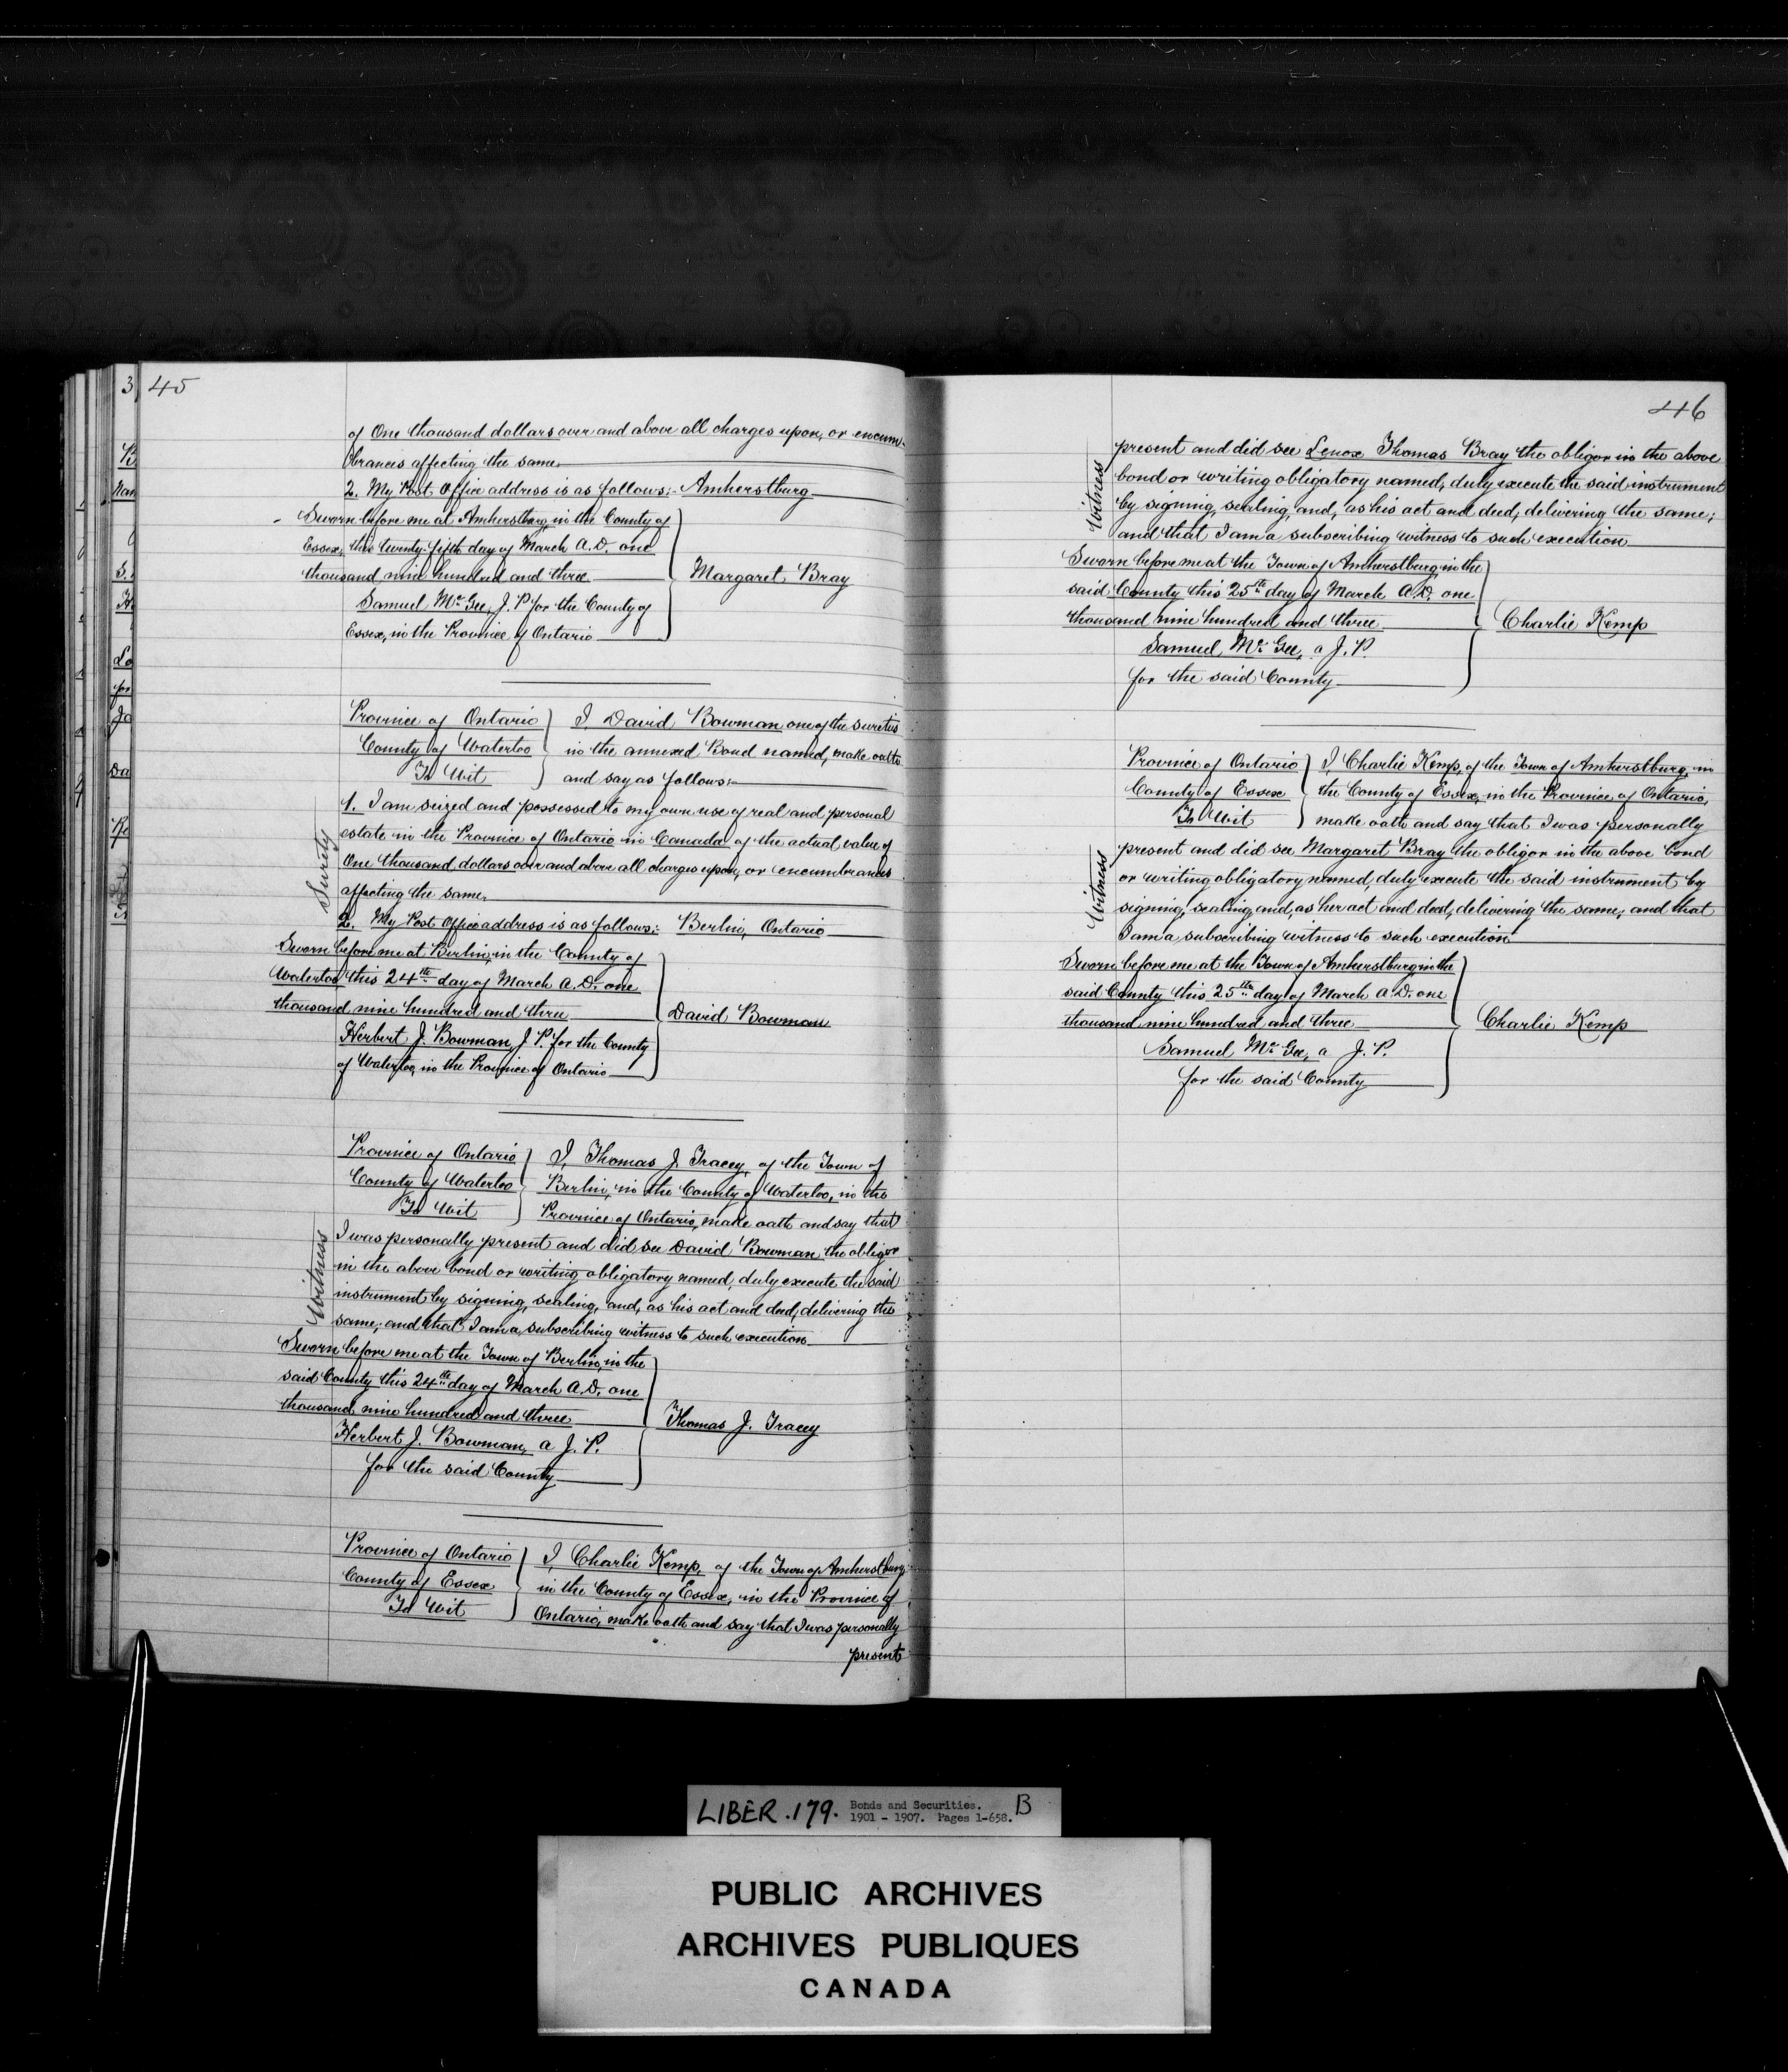 3
45
of One thousand dollars over and above all charges upon, or encum-
brances affecting the same.
2. My Post Office address is as follows:- Amherstburg
Sworn before me at Amherstburg, in the County of
Essex, this twenty-fifth day of March A.D. one
thousand nine hundred and three
Margaret Bray
Samuel Mc Gee, J. P. for the County of
Essex, in the Province of Ontario
Province of Ontario
County of Waterloo
To Wit
I, David Bowman one of the sureties
in the annexed Bond named, make oath
and say as follows:-
Surety
1. I am seized and possessed to my own use of real and personal
estate in the Province of Ontario in Canada of the actual value of
One thousand dollars over and above all charges upon, or encumbrances
affecting the same.
2. My Post Office address is as follows:- Berlin, Ontario
Sworn before me at Berlin, in the County of
Waterloo this 24th day of March A.D. one
thousand nine hundred and three
David Bowman
Herbert J. Bowman, J. P. for the County
of Waterloo, in the Province of Ontario
Province of Ontario
County of Waterloo
To Wit
I, Thomas J. Tracey, of the Town of
Berlin, in the County of Waterloo, in the
Province of Ontario, make oath and say that
Witness
I was personally present and did see David Bowman the obligor
in the above bond or writing obligatory named, duly execute the said
instrument by signing, sealing, and, as his act and deed, delivering the
same; and that I am a subscribing witness to such execution
Sworn before me at the Town of Berlin, in the
said County this 24th day of March A.D. one
thousand nine hundred and three
Thomas J. Tracey
Herbert J. Bowman, a J. P.
for the said County
Province of Ontario
County of Essex
To Wit
I, Charlie Kemp, of the Town of Amherstburg
in the County of Essex, in the Province of
Ontario, make oath and say that I was personally
present
46
Witness
present and did see Lenox Thomas Bray the obligor in the above
bond or writing obligatory named, duly execute the said instrument
by signing, sealing, and, as his act and deed, delivering the same;
and that I am a subscribing witness to such execution
Sworn before me at the Town of Amherstburg, in the
said County this 25th day of March A.D. one
thousand nine hundred and three
Charlie Kemp
Samuel Mc Gee, a J. P.
for the said County
Province of Ontario
County of Essex
To Wit
I, Charlie Kemp, of the Town of Amherstburg, in
the County of Essex, in the Province of Ontario,
make oath and say that I was personally
Witness
present and did see Margaret Bray the obligor in the above bond
or writing obligatory named, duly execute the said instrument by
signing, sealing, and, as her act and deed, delivering the same; and that
I am a subscribing witness to such execution
Sworn before me at the Town of Amherstburg, in the
said County this 25th day of March A.D. one
thousand nine hundred and three
Charlie Kemp
Samuel Mc Gee, a J. P.
for the said County
LIBER .179. Bonds and Securities. B
1901 - 1907. Pages 1-658.
PUBLIC ARCHIVES
ARCHIVES PUBLIQUES
CANADA